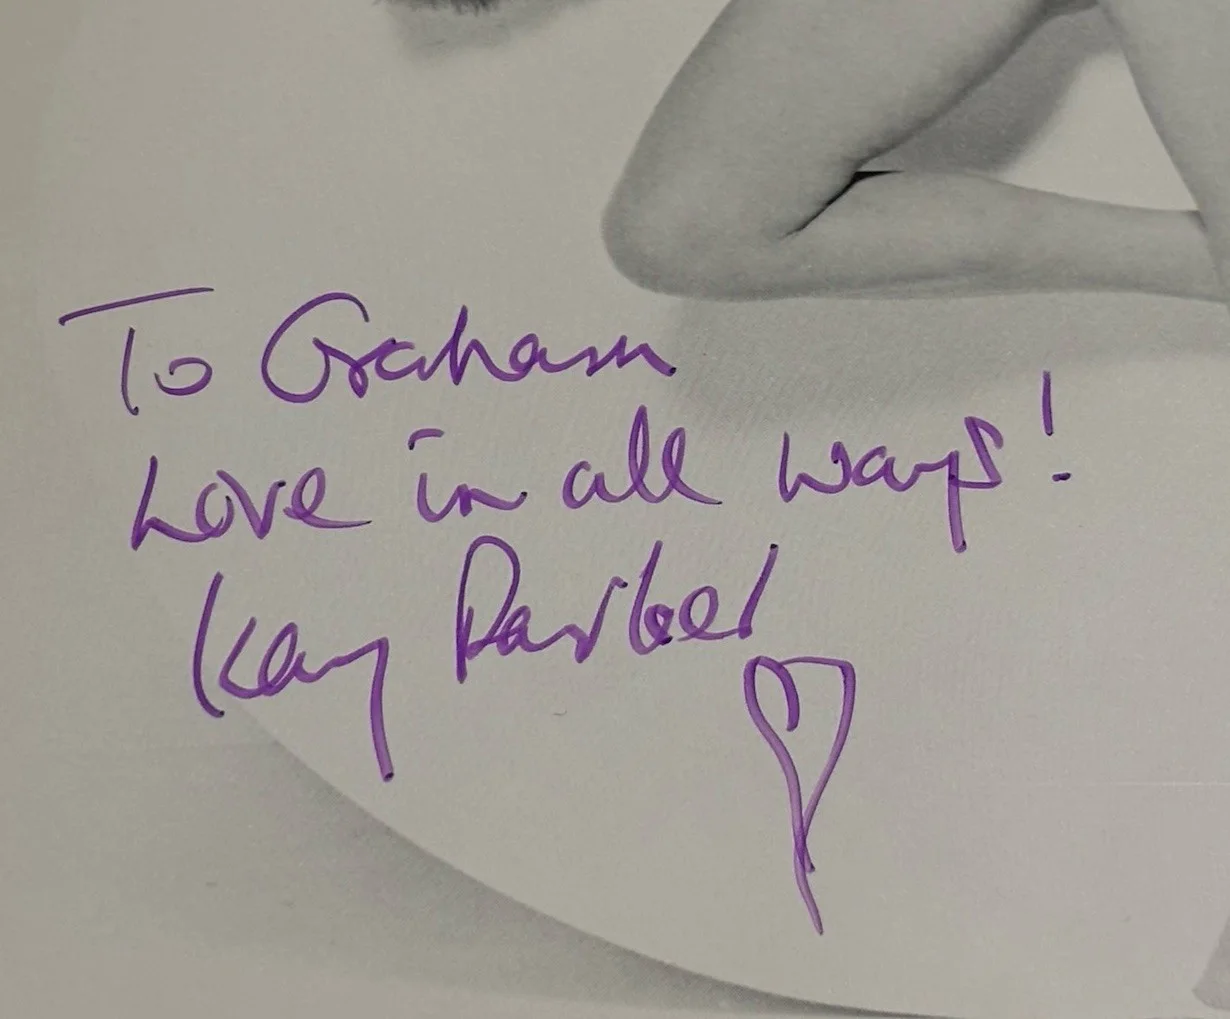 To Graham
Love in all ways!
Kay Parker